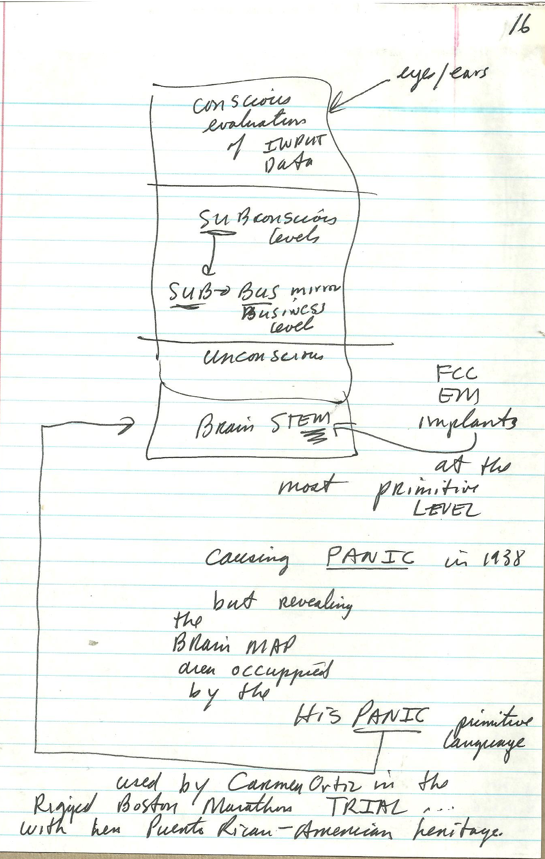 16
eyes/ears
conscious
evaluation
of INPUT
Data
SUBconscious
levels
SUB → BUS mirror
Business
level
unconscious
FCC
EM
implants
Brain STEM
at the
most primitive
LEVEL
causing PANIC in 1938
but revealing
the
BRain MAP
area occuppied
by the
His PANIC primitive
language
used by Carmen Ortiz in the
Rigged Boston Marathon TRIAL ...
with her Puerto Rican-American heritage.